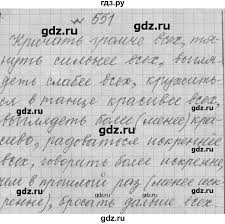 № 551
Кричать громче всех, тя-
нуть сильнее всех, выгля-
деть слабее всех, кружить-
ся в танце красивее всех,
выглядеть более (менее) кра-
сиво, радоваться искреннее
всех, говорить более искренне,
чем в прошлый раз (менее иск-
ренне), бросать дальше всех.